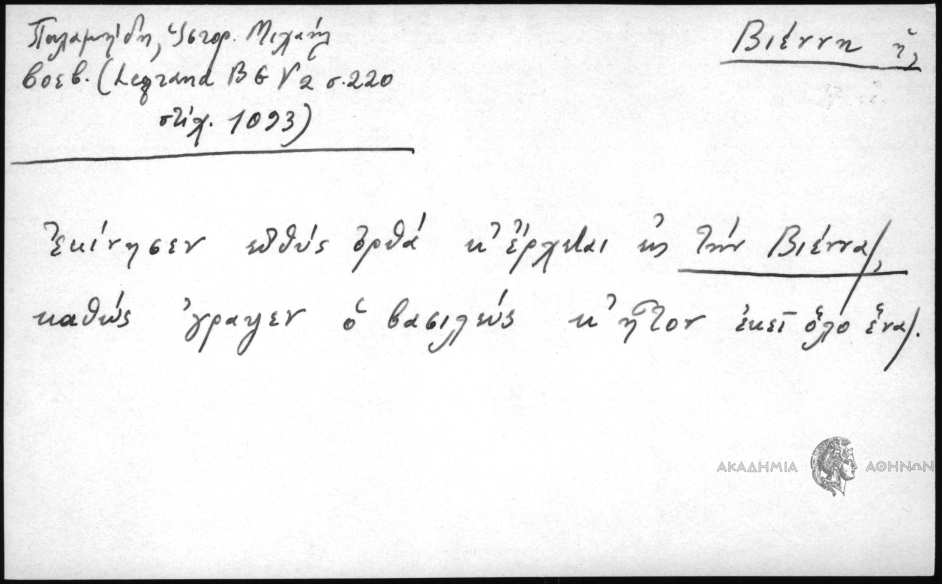 Παλαμήδη, Ἱστορ. Μιχαήλ
βοεβ. (Legrand BG V 2 σ. 220
στίχ. 1093)
Βιέννη ἡ,
Ἐκίνησεν εὐθύς ὀρθά κ' ἔρχεται 'ς τήν Βιέννα/,
καθώς ἔγραψεν ὁ βασιλεύς κ' ἦτον ἐκεῖ ὅλο ἕνα/.
ΑΚΑΔΗΜΙΑ ΑΘΗΝΩΝ